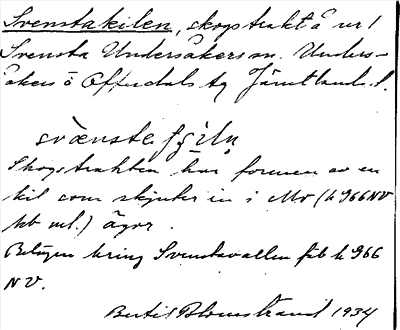 Svenstakilen, skogstrakt å nr 1
Svensta Undersåkers sn. Unders-
åkers o Offerdals tg Jämtlands l.
svænste
Skogstrakten har formen av en
kil som skjuter in i Mo (k 966 NV
ägor.
Belägen kring Svenstavallen fäb k 966
NV.
Bertil Blomstrand 1934